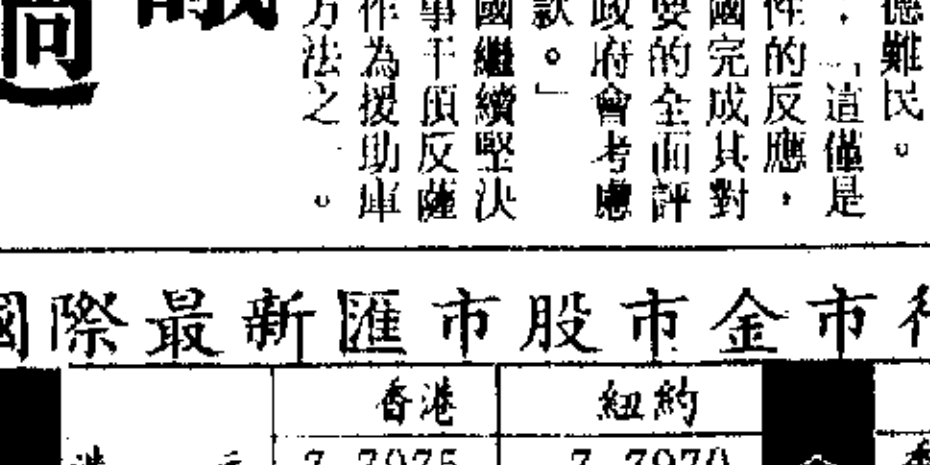 德難民。
：「這僅是
性的反應，
國完成其對
要的全面評
政府會考慮
款。」
國繼續堅決
事干預反薩
作為援助庫
方法之一。
議
國際最新匯市股市金市行
香港 紐約
港 元 7.7975 7.7970